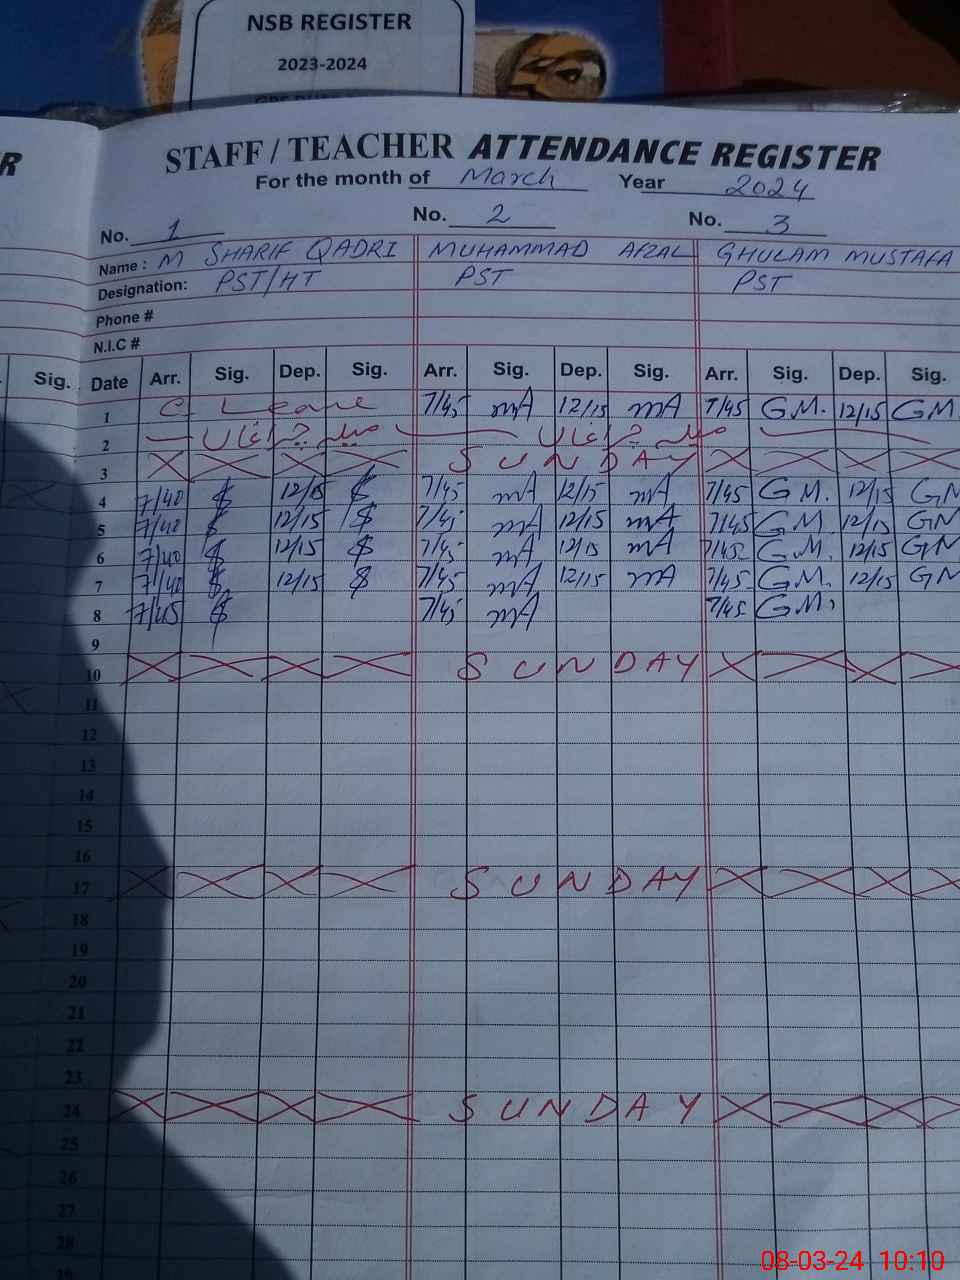 NSB REGISTER
2023-2024
R
STAFF / TEACHER ATTENDANCE REGISTER
For the month of March Year 2024
No. 1 No. 2 No. 3
Name : M SHARIF QADRI MUHAMMAD AFZAL GHULAM MUSTAFA
Designation: PST/HT PST PST
Phone #
N.I.C #
Sig. Date Arr. Sig. Dep. Sig. Arr. Sig. Dep. Sig. Arr. Sig. Dep. Sig.
1 C. Leave 7/45 mA 12/15 mA 7/45 G.M. 12/15 G.M.
2 میلہ چراغاں میلہ چراغاں
3 SUNDAY
4 7/40 12/15 7/45 mA 12/15 mA 7/45 G.M. 12/15 GM
5 7/40 12/15 7/45 mA 12/15 mA 7/45 G.M. 12/15 GM
6 7/40 12/15 7/45 mA 12/15 mA 7/45 G.M. 12/15 GM
7 7/40 12/15 7/45 mA 12/15 mA 7/45 G.M. 12/15 GM
8 7/45 7/45 mA 7/45 G.M.
9
10 SUNDAY
11
12
13
14
15
16
17 SUNDAY
18
19
20
21
22
23
24 SUNDAY
25
26
27
28
08-03-24 10:10